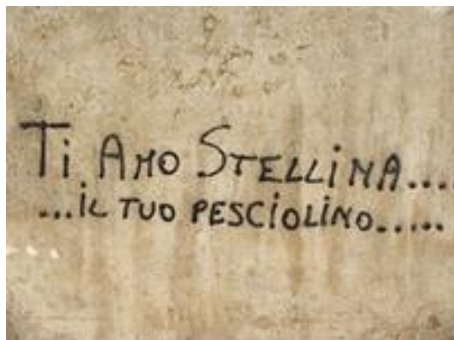 Ti AMO STELLiNA....
...iL TUO PESCiOLiNO......